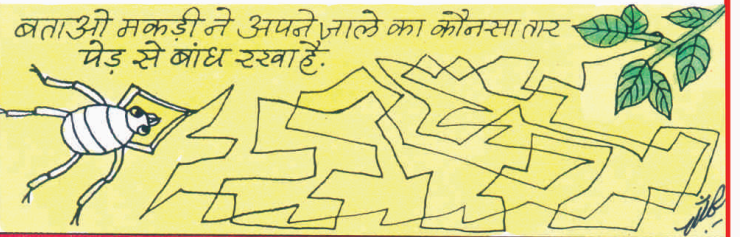 बताओ मकड़ी ने अपने जाले का कौनसा तार
पेड़ से बांध रखा है.